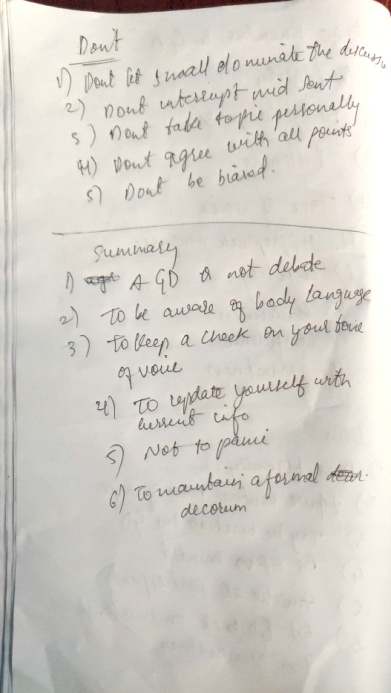 Dont
1) Dont let small dominate the discuss
2) Dont interrupt mid sent
3) Dont take topic personally
4) Dont agree with all points
5) Dont be biased.
Summary
1) A GD is not debate
2) To be aware of body language
3) To keep a check on your tone
of voice
4) To update yourself with
current info
5) Not to panic
6) To maintain a formal
decorum